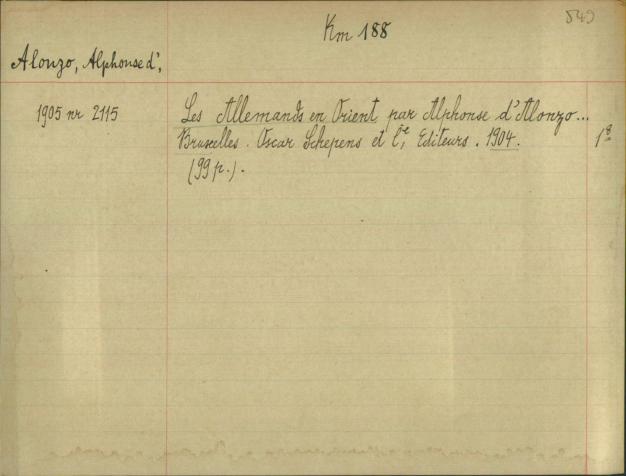 549
Km 188
Alonzo, Alphonse d',
1905 nr 2115
Les Allemands en Orient, par Alphonse d'Alonzo...
Bruxelles. Oscar Schepens et Cie, Editeurs. 1904.
18
(99 p.).